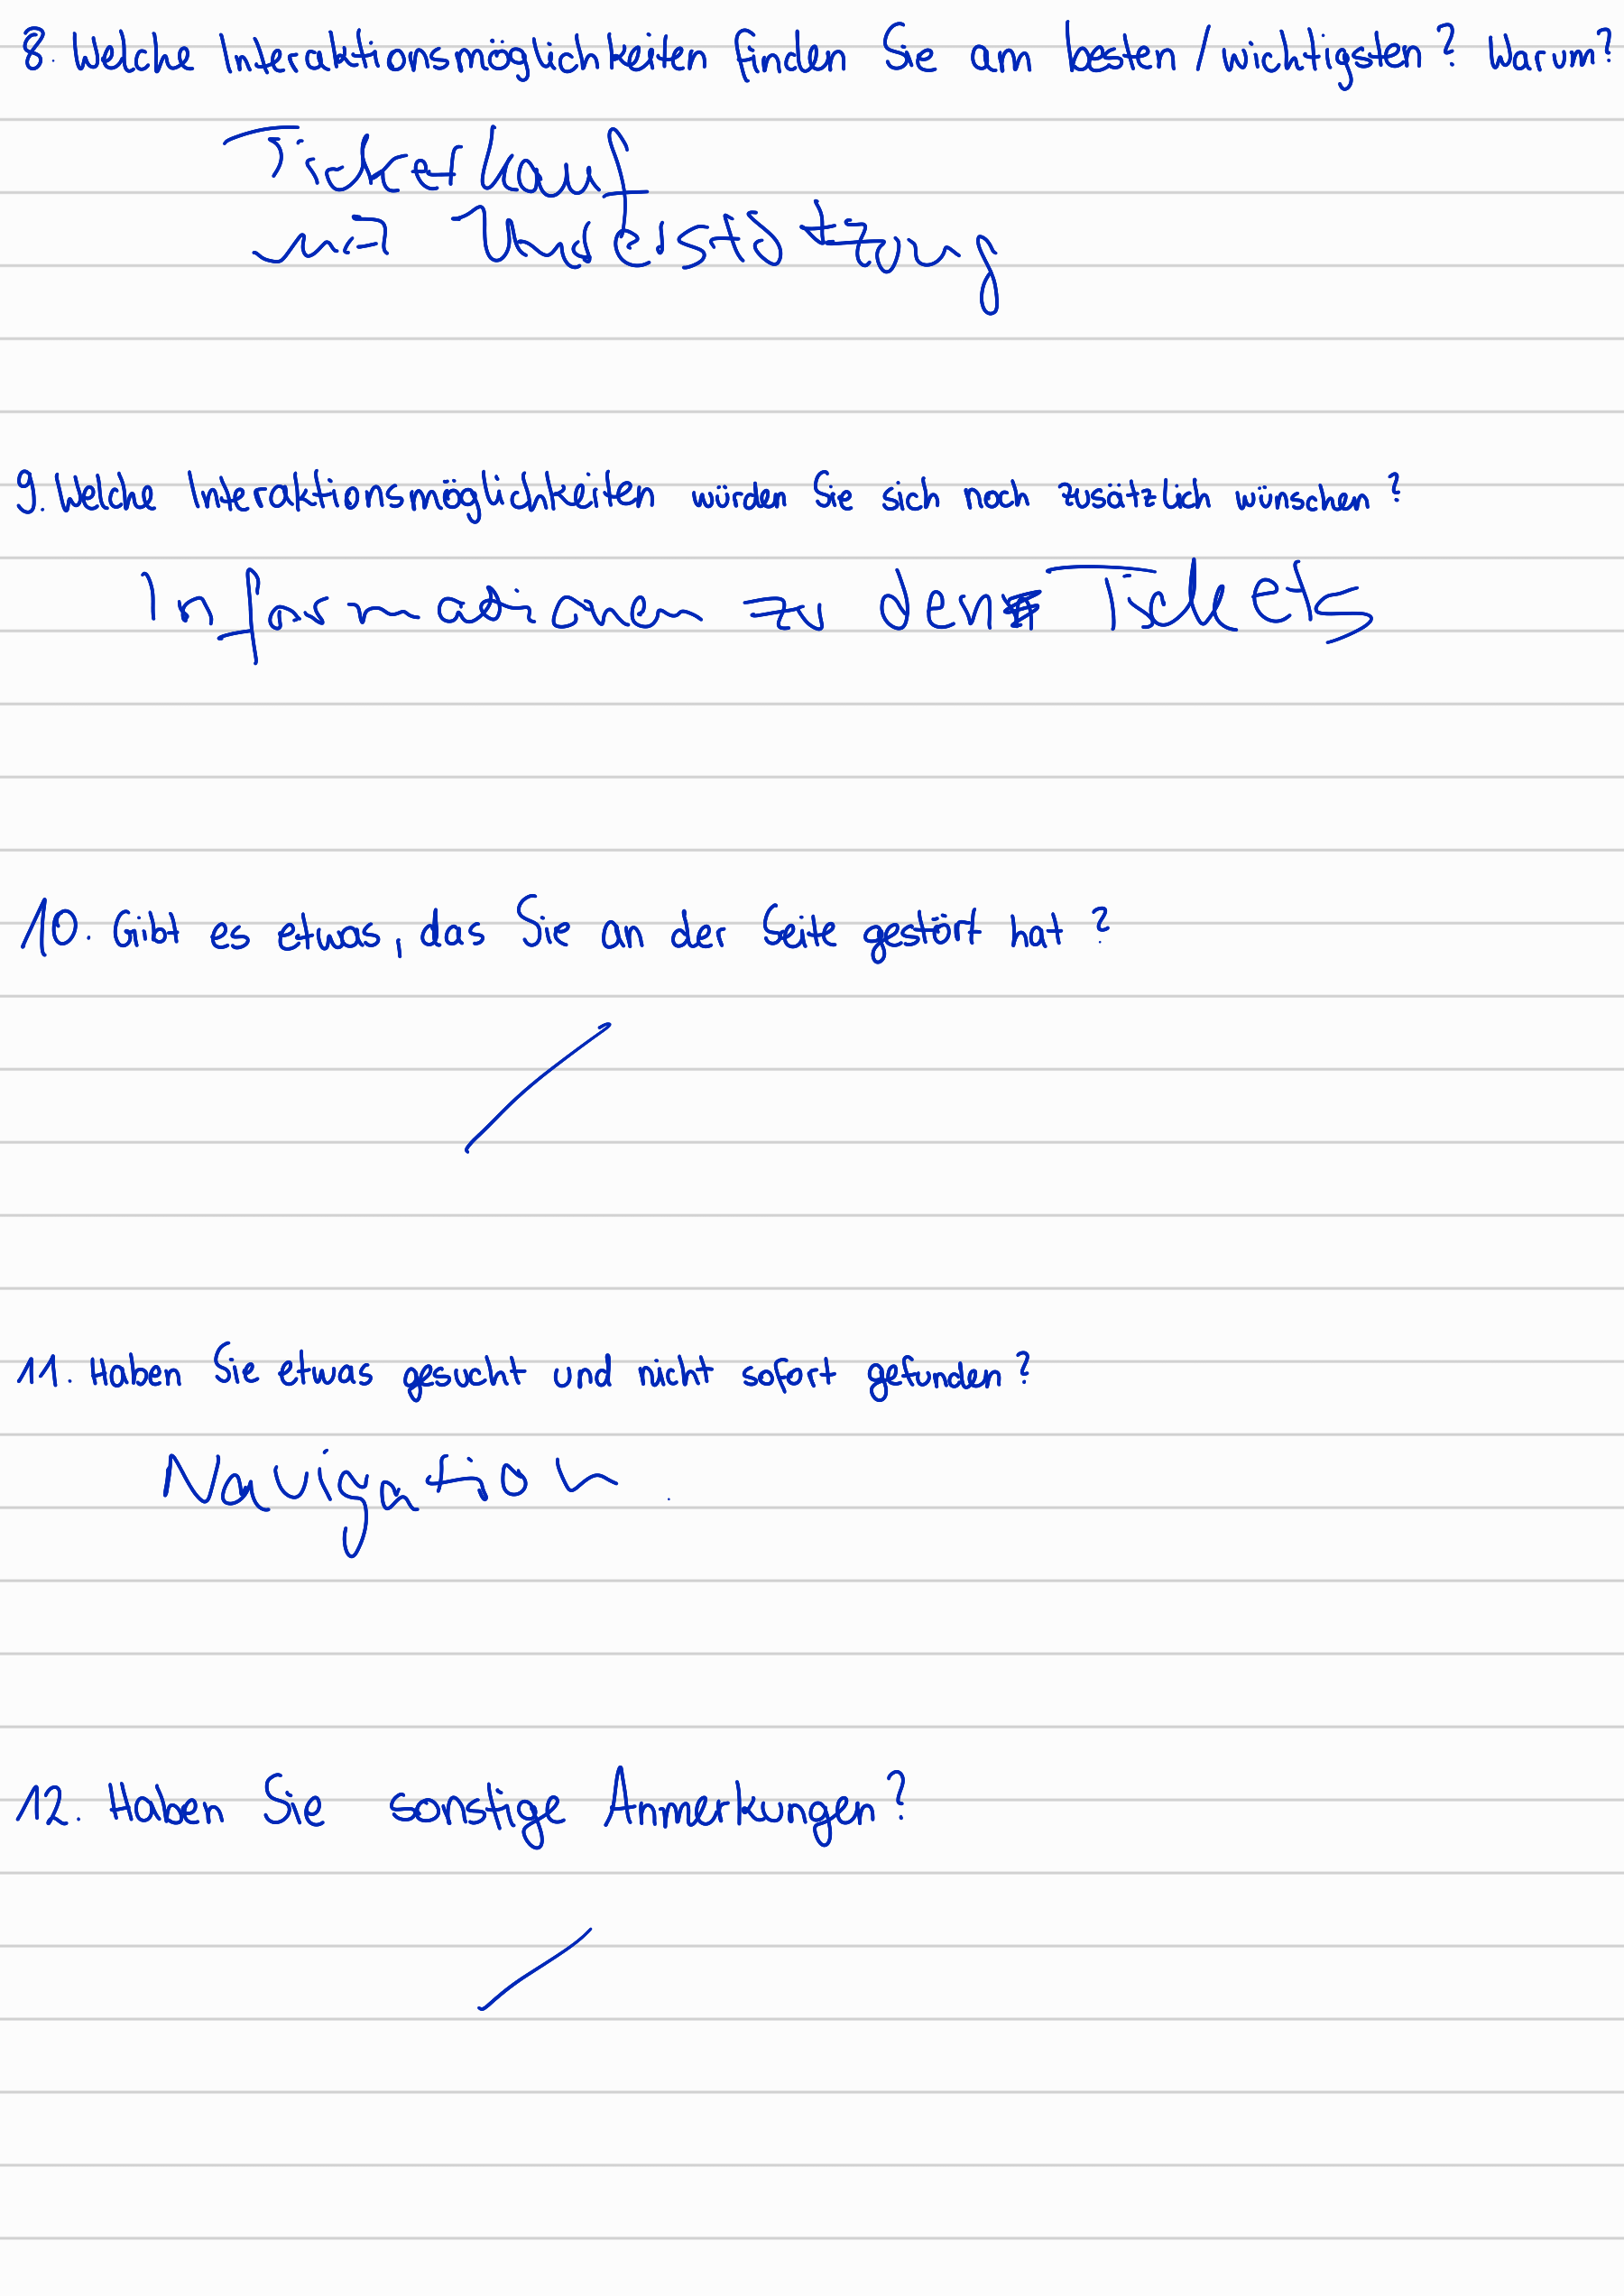 8. Welche Interaktionsmöglichkeiten finden Sie am besten/wichtigsten? Warum?
Ticketkauf
mit Unterstützung
9. Welche Interaktionsmöglichkeiten würden Sie sich noch zusätzlich wünschen?
Informationen zu den Tickets
10. Gibt es etwas, das Sie an der Seite gestört hat?
/
11. Haben Sie etwas gesucht und nicht sofort gefunden?
Navigation
12. Haben Sie sonstige Anmerkungen?
/